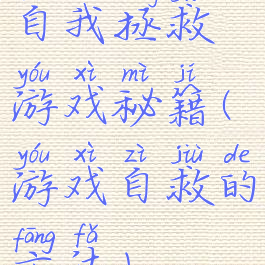 自我拯救
yóu xì mì jí
游戏秘籍(
yóu xì zì jiù de
游戏自救的
fāng fǎ
方法)